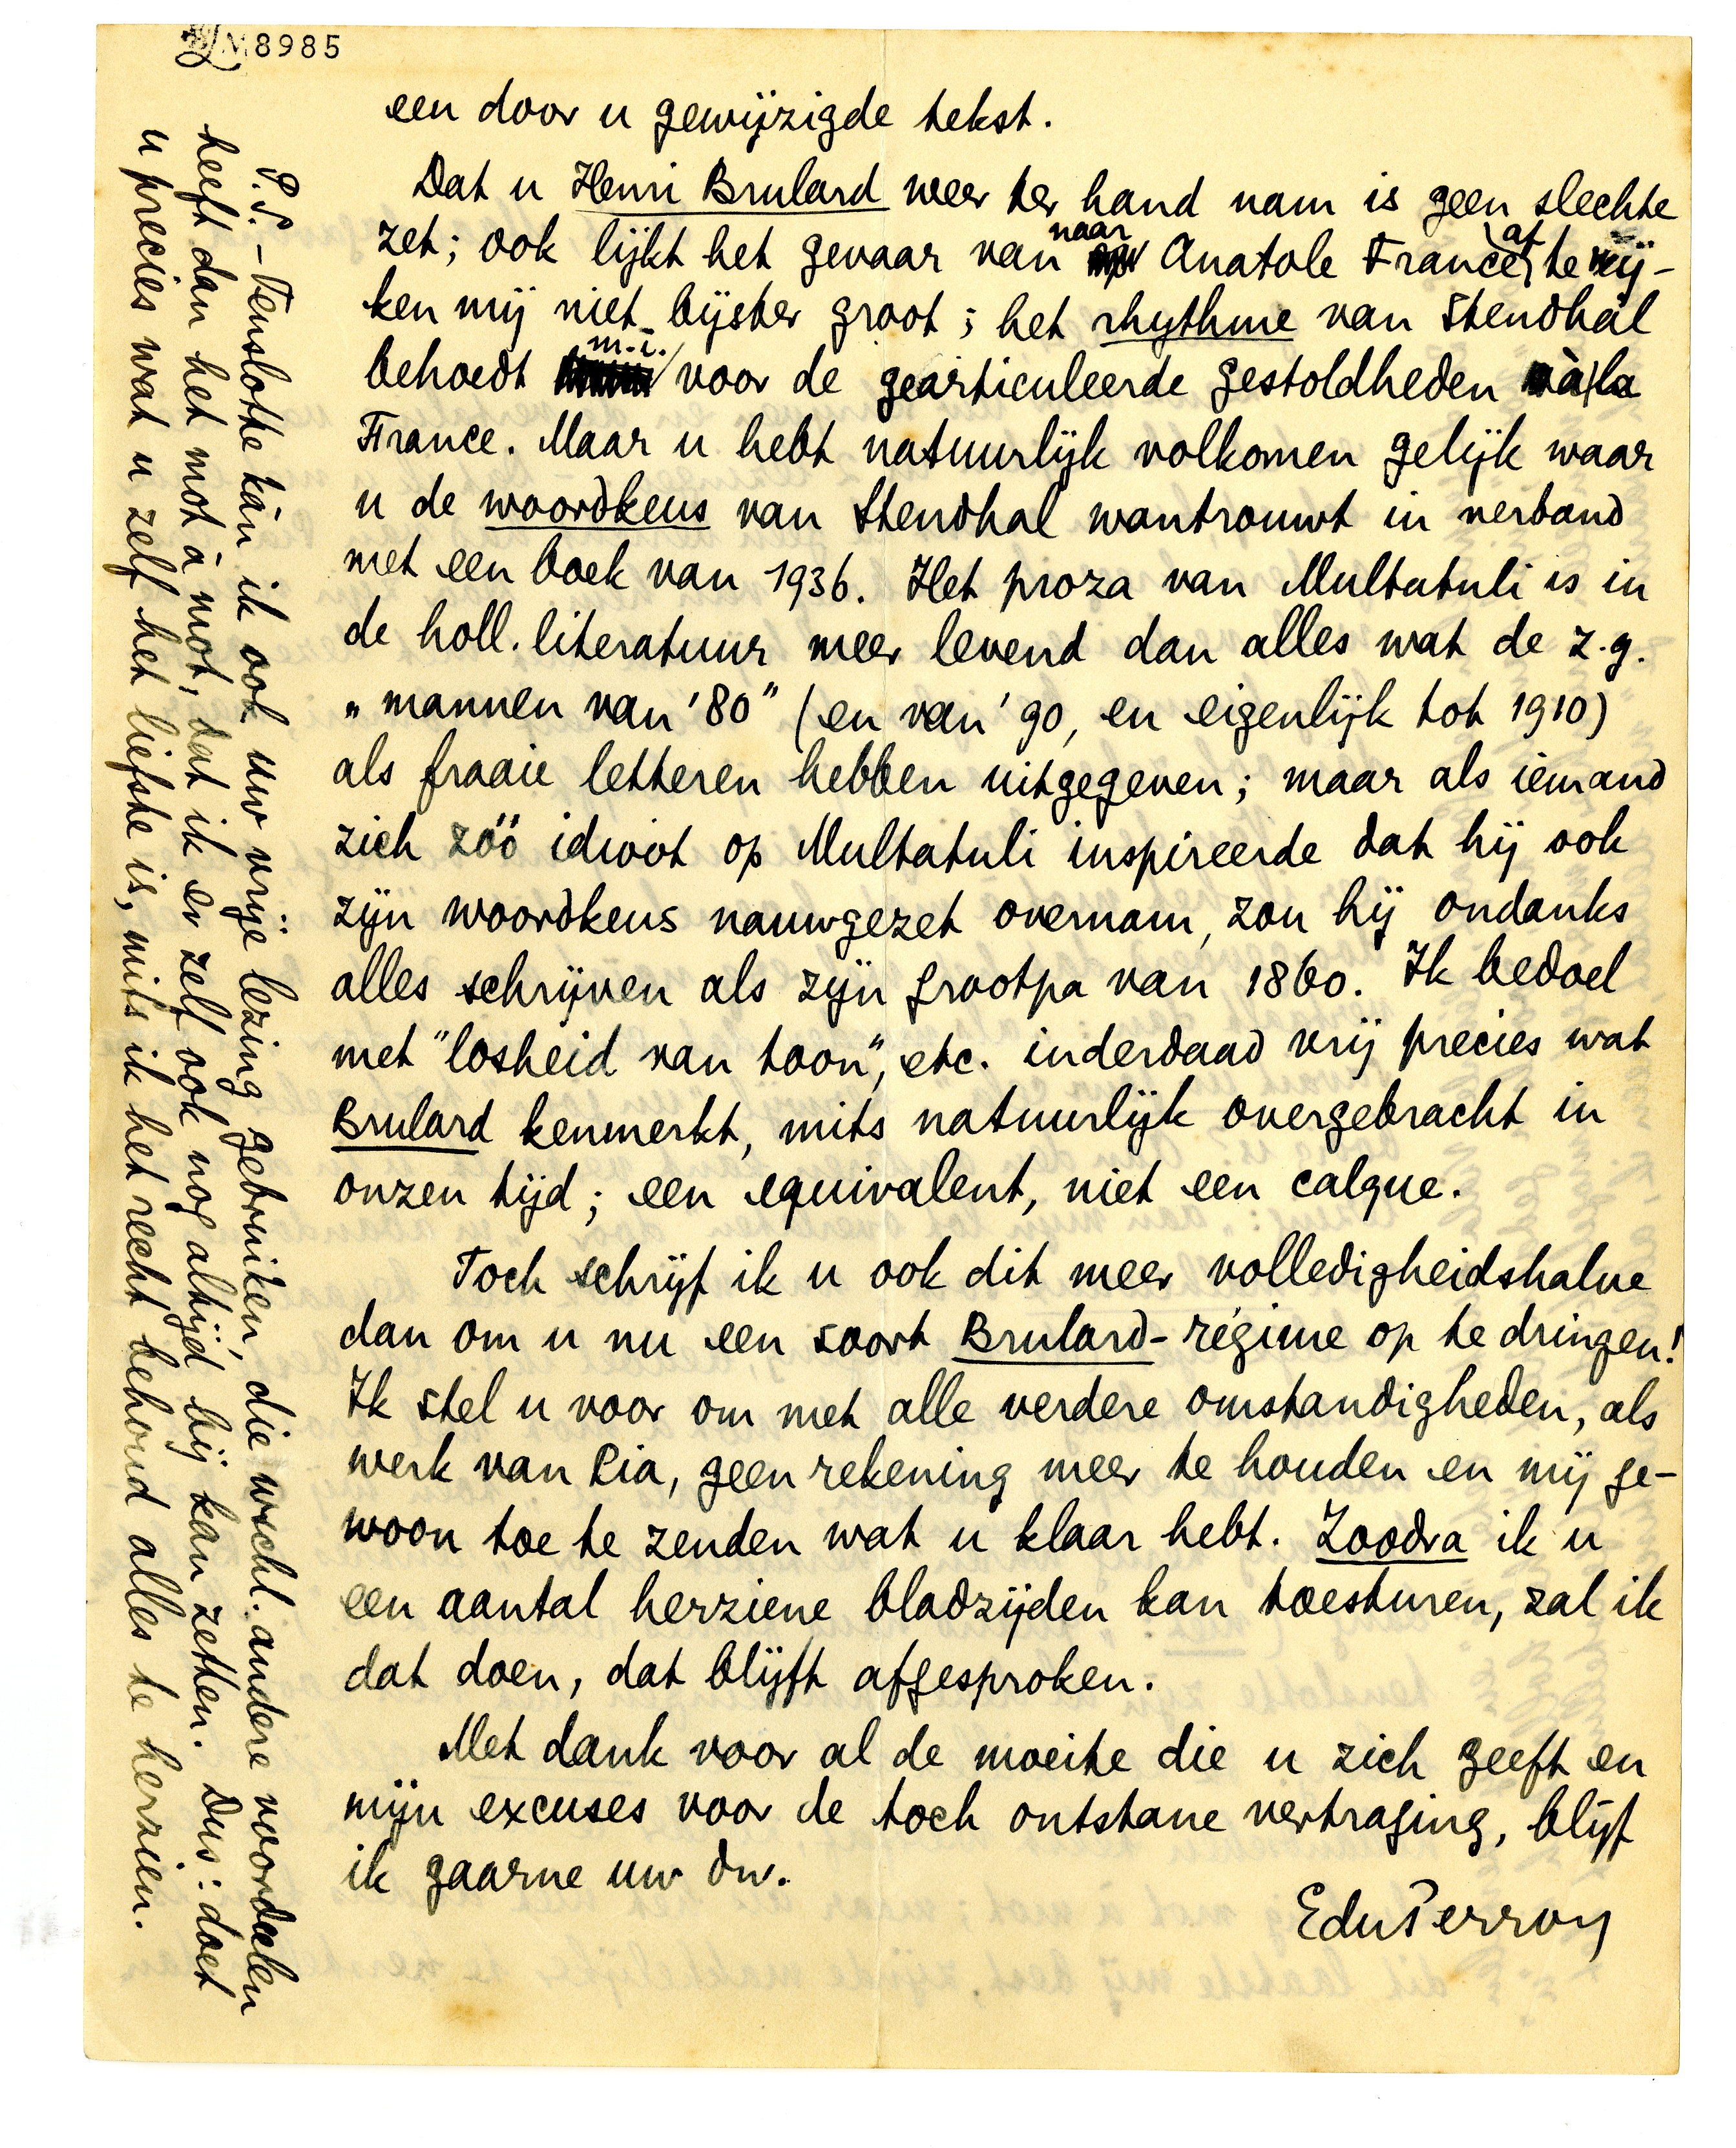 8985
een door u gewijzigde tekst.
Dat u Henri Brulard weer ter hand nam is geen slechte
zet; ook lijkt het gevaar van naar Anatole France af te wij-
ken mij niet bijster groot; het rhythme van Stendhal
behoedt m.i. voor de gearticuleerde gestoldheden à la
France. Maar u hebt natuurlijk volkomen gelijk waar
u de woordkeus van Stendhal wantrouwt in verband
met een boek van 1936. Het proza van Multatuli is in
de holl. literatuur meer levend dan alles wat de z.g.
„mannen van '80" (en van '90, en eigenlijk tot 1910)
als fraaie letteren hebben uitgegeven; maar als iemand
zich zóó idioot op Multatuli inspireerde dat hij ook
zijn woordkeus nauwgezet overnam, zou hij ondanks
alles schrijven als zijn grootpa van 1860. Ik bedoel
met "losheid van toon", etc. inderdaad vrij precies wat
Brulard kenmerkt, mits natuurlijk overgebracht in
onzen tijd; een equivalent, niet een calque.
Toch schrijf ik u ook dit meer volledigheidshalve
dan om u nu een soort Brulard-régime op te dringen!
Ik stel u voor om met alle verdere omstandigheden, als
werk van Pia, geen rekening meer te houden en mij ge-
woon toe te zenden wat u klaar hebt. Zoodra ik u
een aantal herziene bladzijden kan toesturen, zal ik
dat doen, dat blijft afgesproken.
Met dank voor al de moeite die u zich geeft en
mijn excuses voor de toch ontstane vertraging, blijf
ik gaarne uw dw.
EduPerron
P.S. – Tenslotte kàn ik ook uw vrije lezing gebruiken, die wschl. andere voordelen
heeft dan het mot à mot, dat ik er zelf ook nog altijd bij kan zetten. Dus: doet
u precies wat u zelf het liefste is, mits ik het recht behoud alles te herzien.